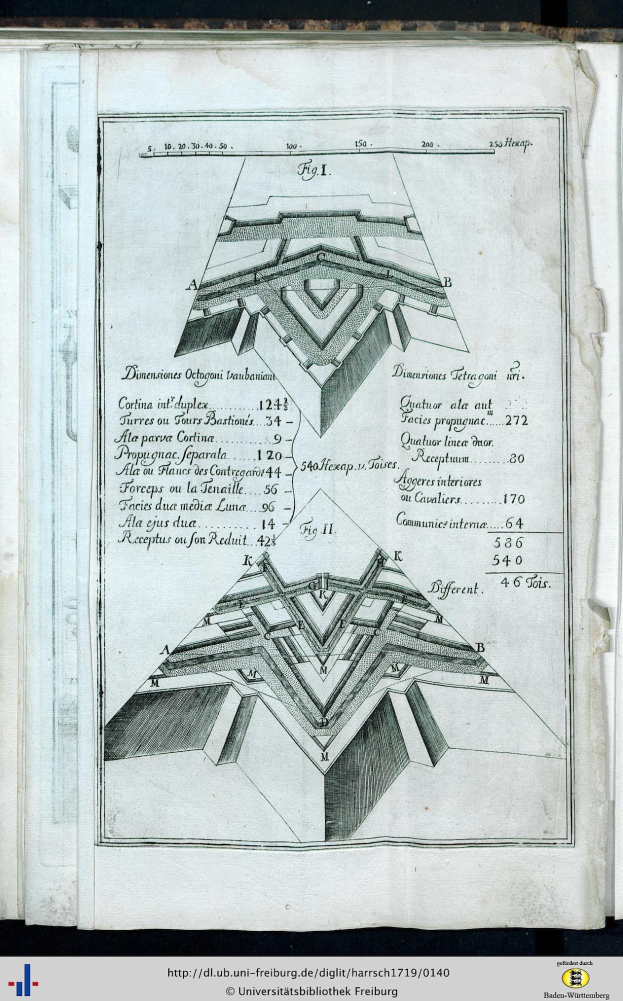 5. 10. 20. 30. 40. 50. 100. 150. 200. 250 Hexap.
Fig. I.
G
L L
A B
Dimensiones Octogoni Vaubaniani
Cortina intr. duplex 124 2/3
Turres ou Tours Bastionés 34
Ala parva Cortina 9
Propugnac. separata 120
Ala ou Flancs des Contregardes 44
Forceps ou la Tenaille 56
Facies dua mediæ Lunæ 96
Ala ejus dua 14
Receptus ou son Reduit 42 1/3
540 Hexap. v. Toises.
Dimensiones Tetragoni nri.
Quatuor ala aut
Facies propugnac. 272
Quatuor lineæ
Receptuum 80
Aggeres interiores
ou Cavaliers 170
Communic internæ 64
586
540
Different. 46 Tois.
Fig. II.
K K
H
G
K
F L
M M
C E E C
A B
M
M M
M M
D
M
http://dl.ub.uni-freiburg.de/diglit/harrsch1719/0140
© Universitätsbibliothek Freiburg
gefördert durch
Baden-Württemberg